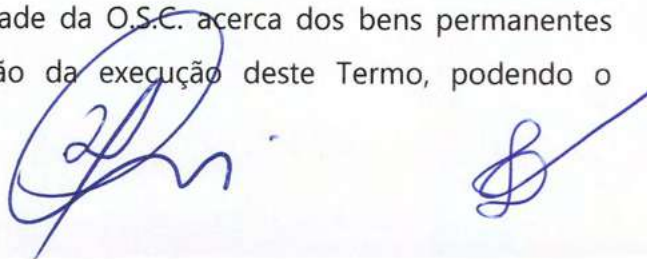 ade da O.S.C. acerca dos bens permanentes
ão da execução deste Termo, podendo o